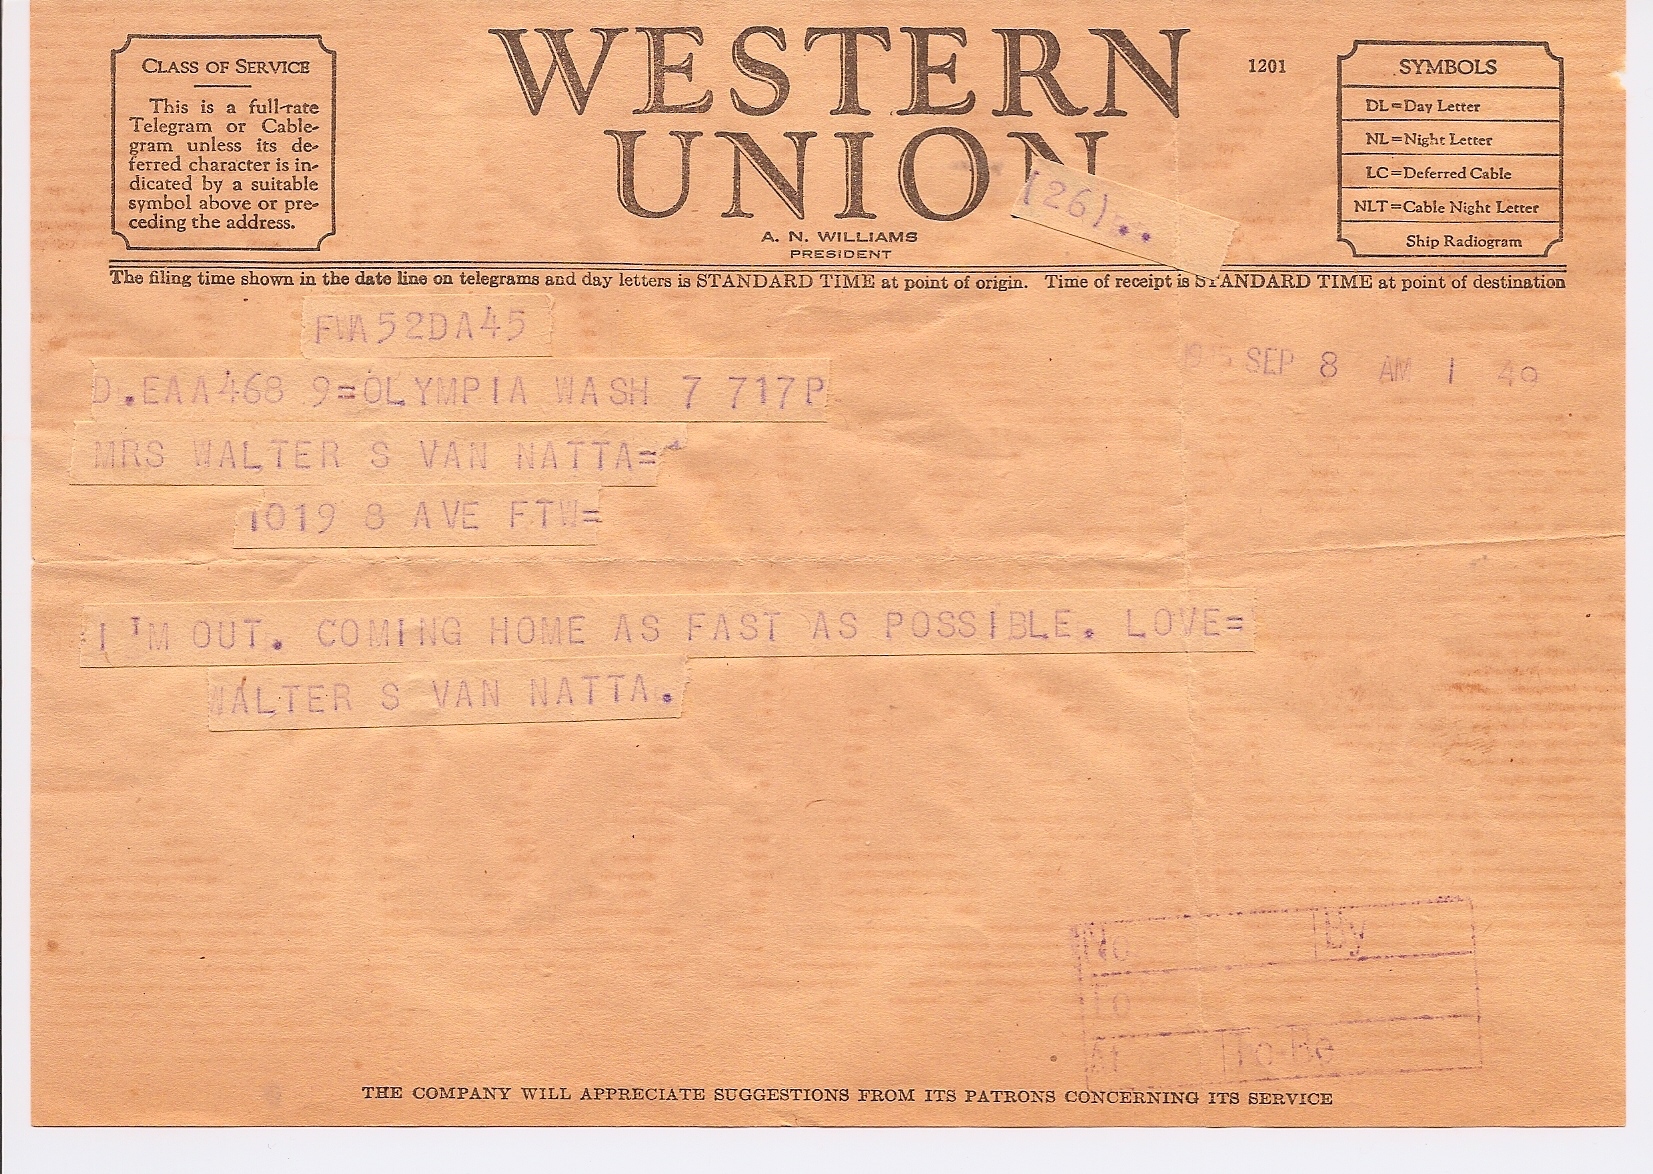 CLASS OF SERVICE
This is a full-rate
Telegram or Cable-
gram unless its de-
ferred character is in-
dicated by a suitable
symbol above or pre-
ceding the address.
WESTERN
UNION
1201
(26)..
A. N. WILLIAMS
PRESIDENT
SYMBOLS
DL=Day Letter
NL=Night Letter
LC=Deferred Cable
NLT=Cable Night Letter
Ship Radiogram
The filing time shown in the date line on telegrams and day letters is STANDARD TIME at point of origin. Time of receipt is STANDARD TIME at point of destination
FWA52DA45
SEP 8 AM 1 49
D.EAA468 9=OLYMPIA WASH 7 717P
MRS WALTER S VAN NATTA=
1019 8 AVE FTW=
I'M OUT. COMING HOME AS FAST AS POSSIBLE. LOVE=
WALTER S VAN NATTA.
No By
To
At To Be
THE COMPANY WILL APPRECIATE SUGGESTIONS FROM ITS PATRONS CONCERNING ITS SERVICE